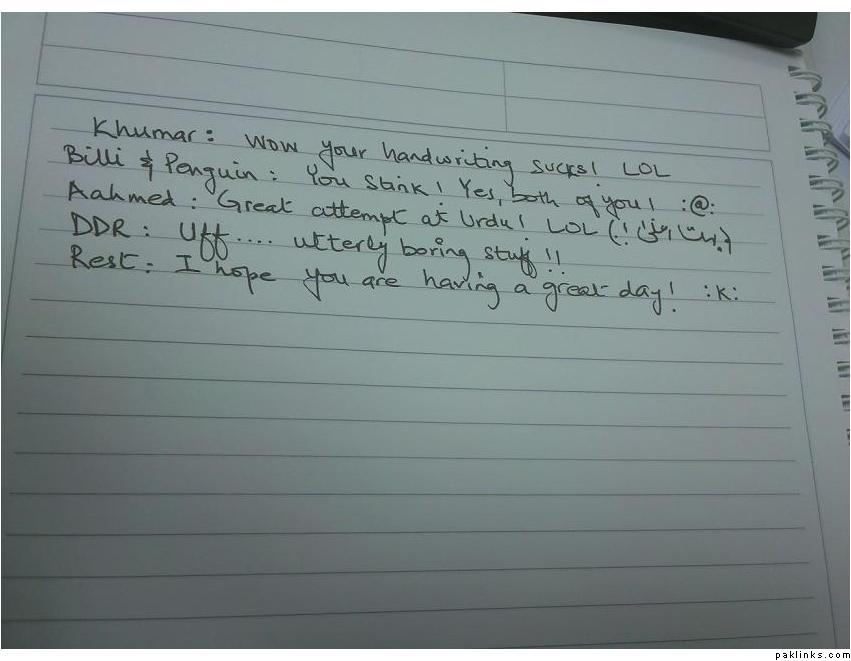 Khumar: Wow your handwriting sucks! LOL
Billi & Penguin: You stink! Yes, both of you! :@:
Aahmed: Great attempt at Urdu! LOL (بہت !)
DDR: Uff.... utterly boring stuff!!
Rest: I hope you are having a great day! :K:
paklinks.com